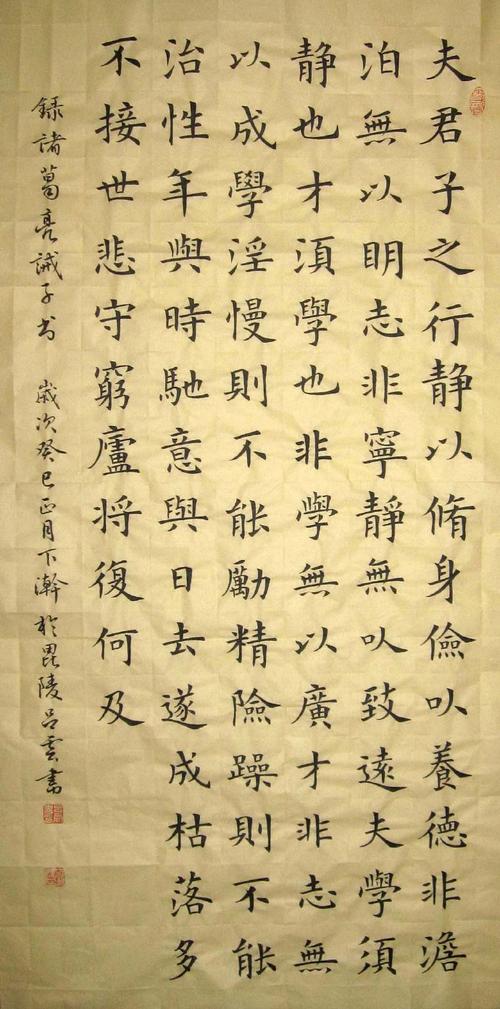 夫君子之行静以脩身儉以養德非澹
泊無以明志非寧静無以致遠夫學須
静也才須學也非學無以廣才非志無
以成學淫慢則不能勵精險躁則不能
治性年與時馳意與日去遂成枯落多
不接世悲守窮廬将復何及
録諸葛亮誡子书 歲次癸巳正月下澣於毘陵吕雲書